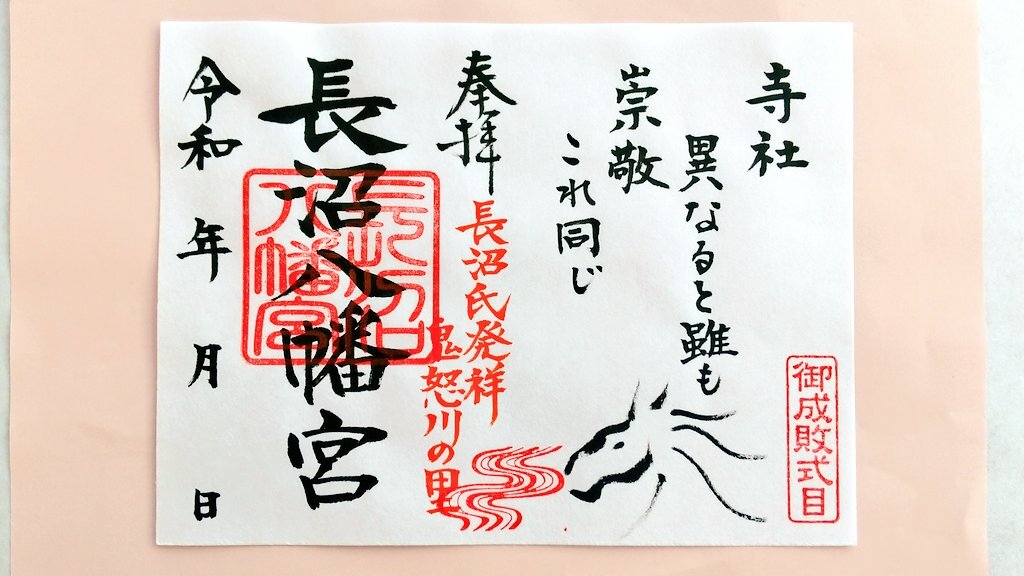 寺社
異なると雖も
崇敬
これ同じ
御成敗式目
奉拝
長沼氏発祥
鬼怒川の里
長沼八幡宮
長沼
八幡宮
令和 年 月 日